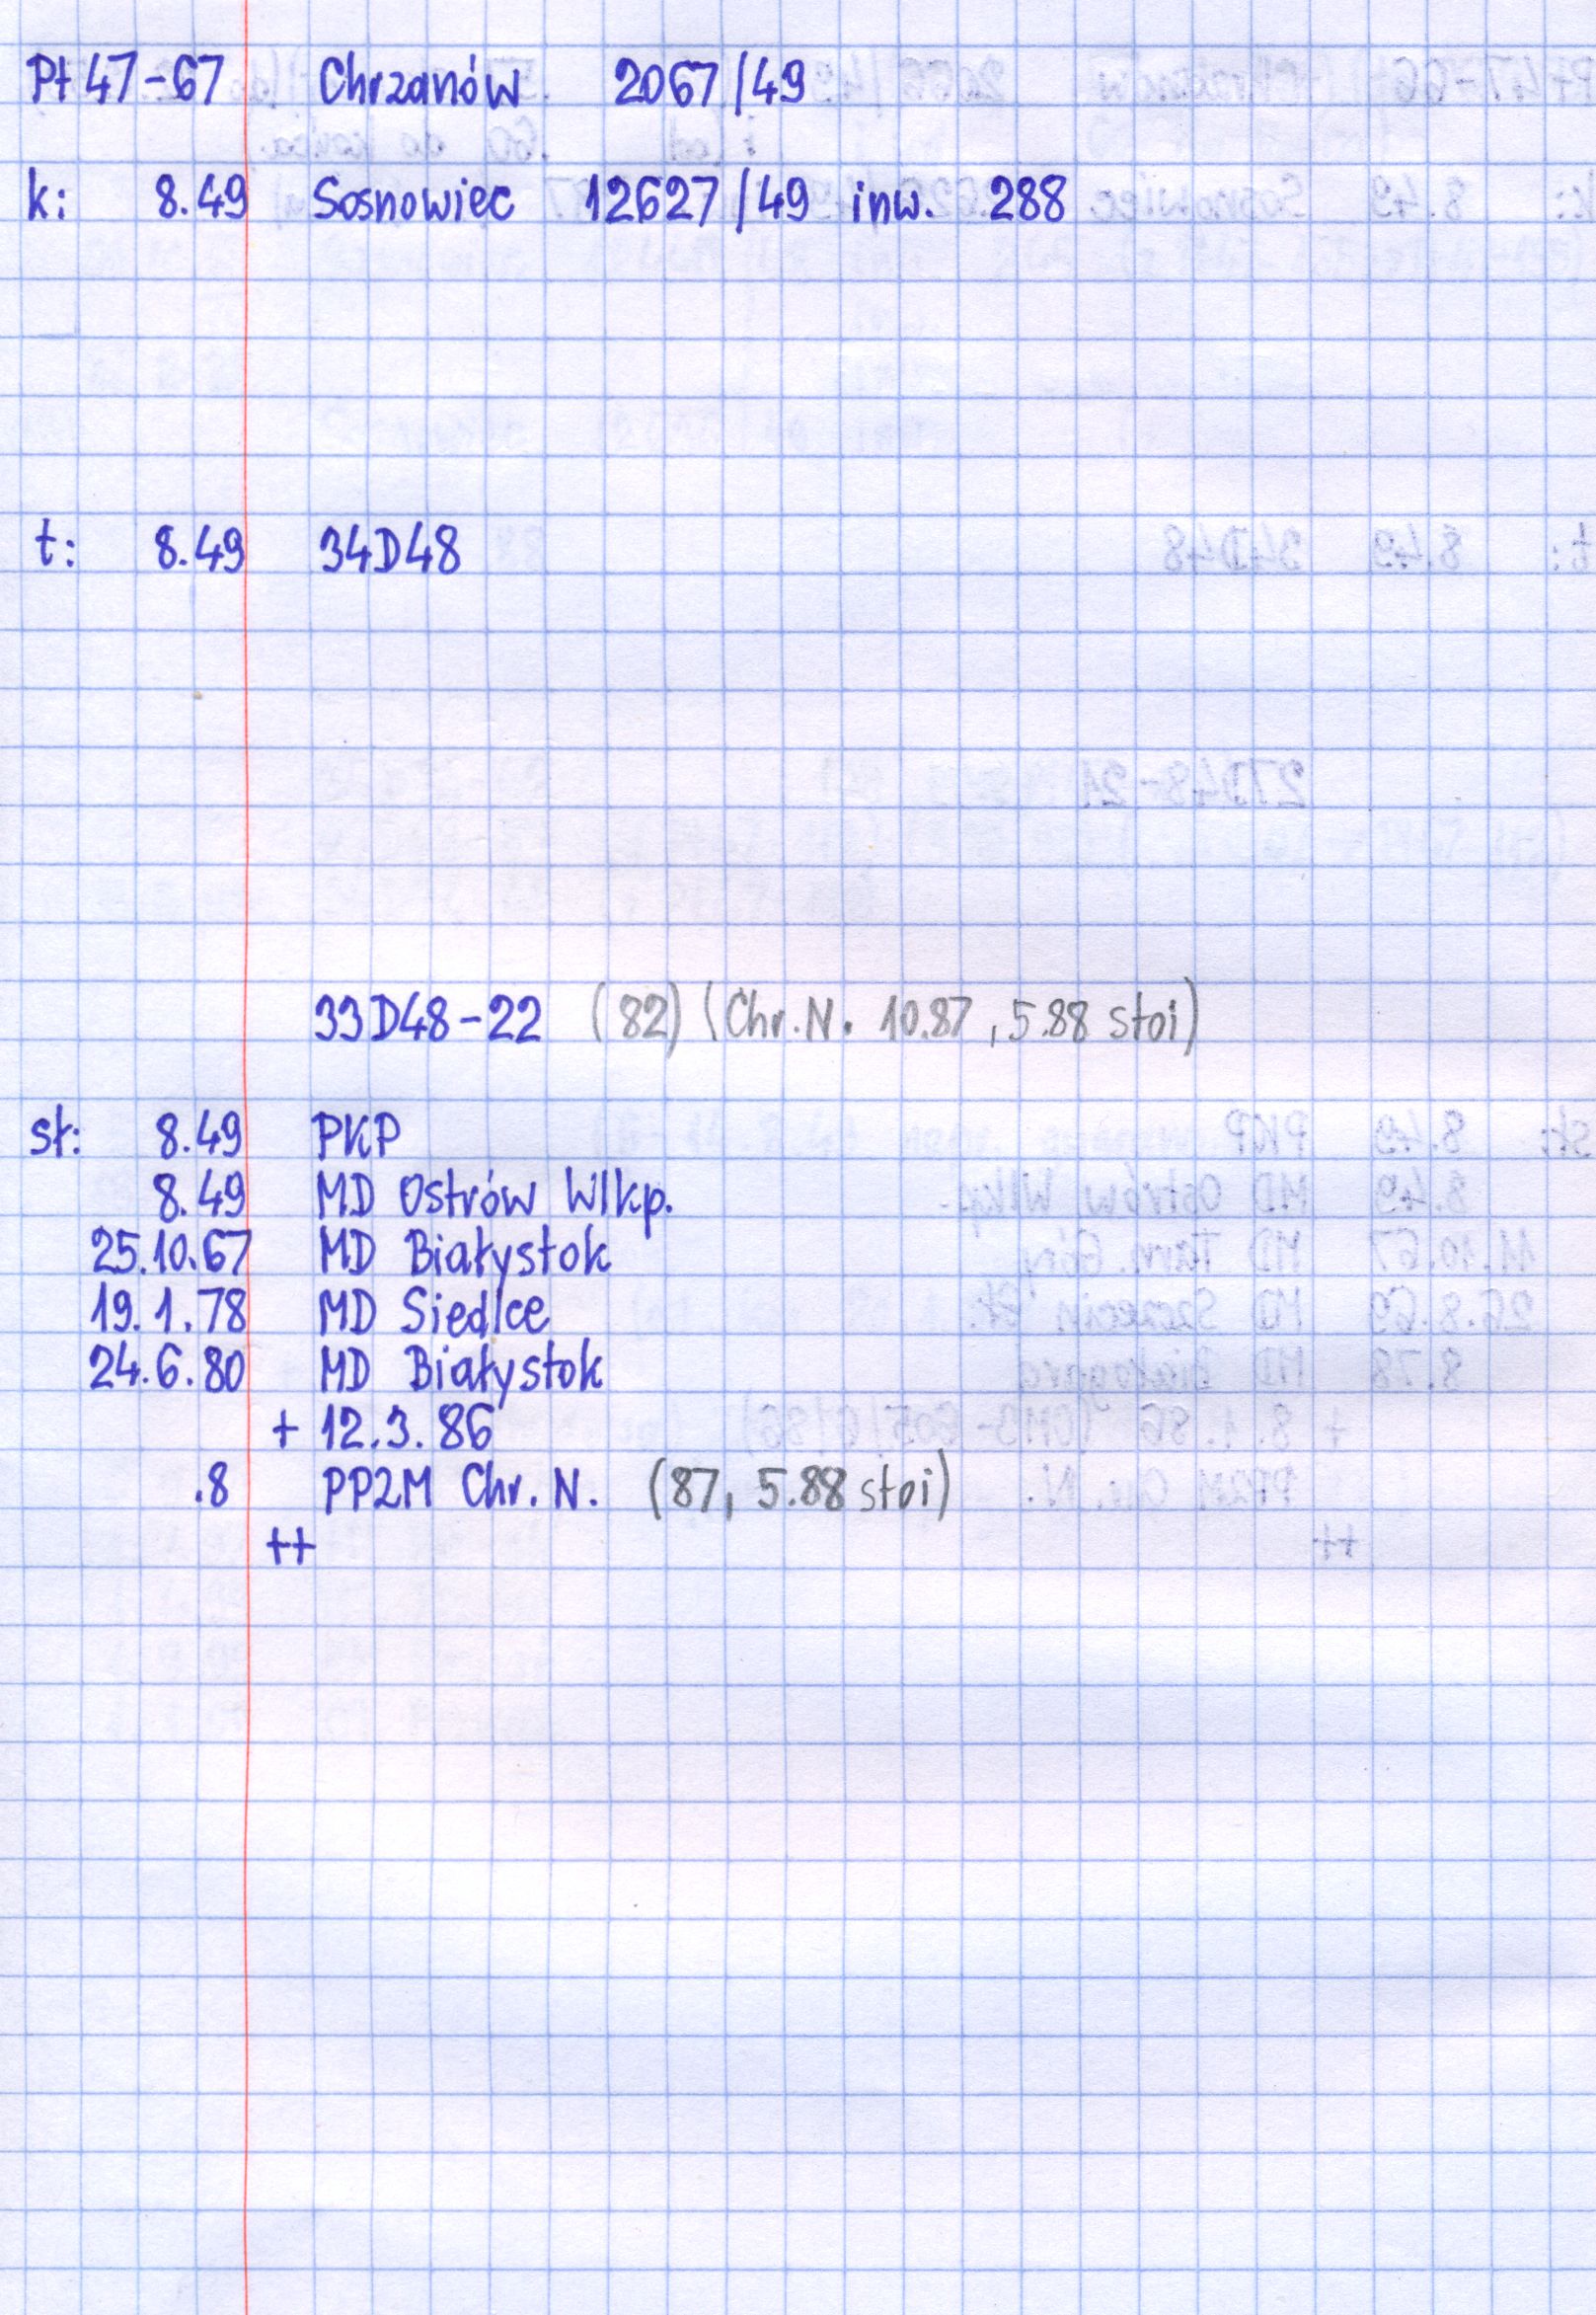 Pt 47-67 Chrzanów 2067/49
k: 8.49 Sosnowiec 12627/49 inw. 288
t: 8.49 34D48
33D48-22 (82) (Chr.N. 10.87, 5.88 stoi)
sł: 8.49 PKP
8.49 MD Ostrów Wlkp.
25.10.67 MD Białystok
19.1.78 MD Siedlce
24.6.80 MD Białystok
+ 12.3.86
.8 PP2M Chr. N. (87, 5.88 stoi)
++